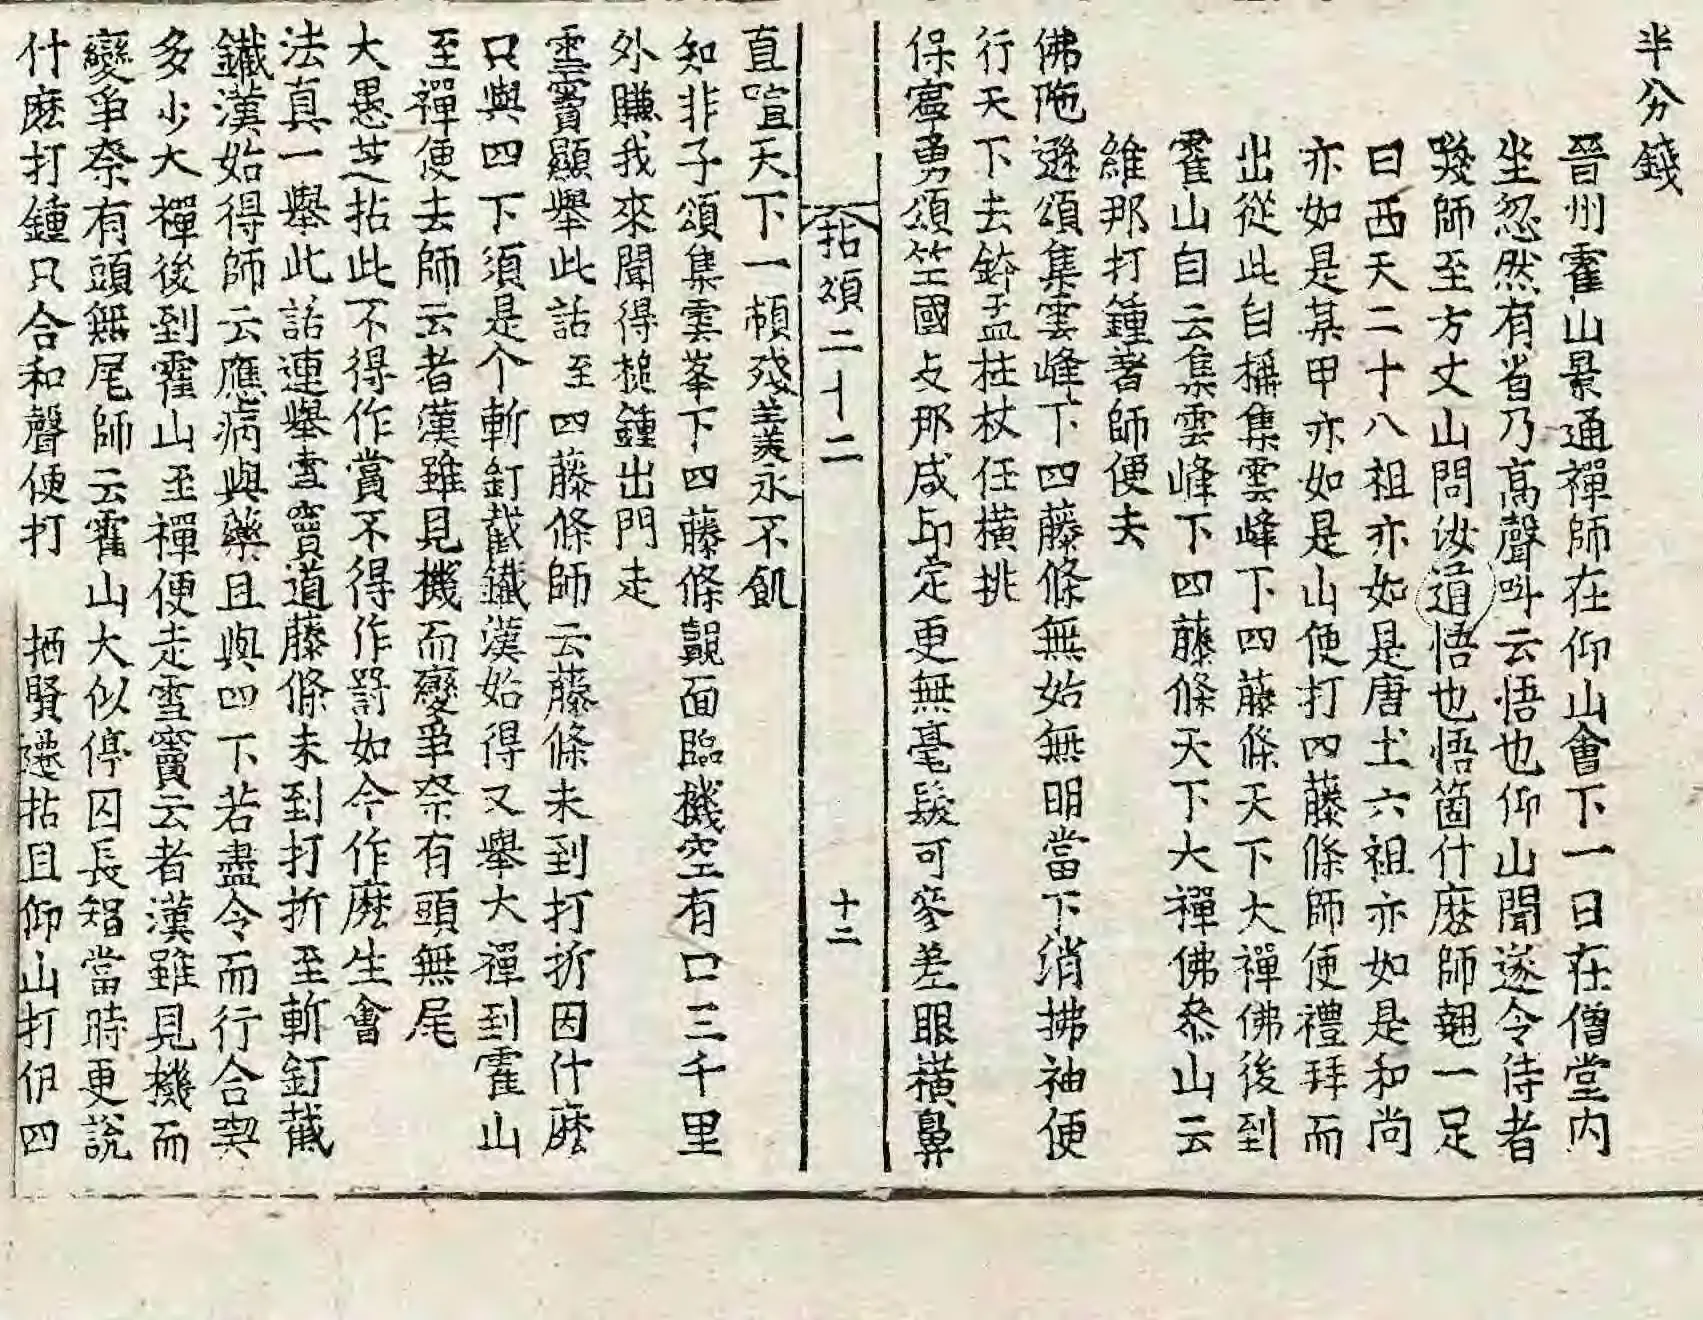 半分錢
晉州霍山景通禪師在仰山會下一日在僧堂內
坐忽然有省乃高聲叫云悟也悟也仰山聞遂令侍者
喚師至方丈山問汝道悟也悟箇什麽師翹一足
曰西天二十八祖亦如是唐土六祖亦如是和尚
亦如是某甲亦如是山便打四藤條師便禮拜而
出從此自稱集雲峰下四藤條天下大禪佛後到
霍山自云集雲峰下四藤條天下大禪佛叅山云
維那打鍾著師便去
佛陁遜頌集雲峰下四藤條無始無明當下消拂袖便
行天下去鉢盂柱杖任橫挑
保寧勇頌竺國支那咸印定更無毫髮可參差眼橫鼻
拈頌二十二 十二
直喧天下一頓殘羹永不飢
知非子頌集雲峯下四藤條覿面臨機空有口三千里
外賺我來聞得槌鍾出門走
雪竇顯擧此話至四藤條師云藤條未到打折因什麽
只與四下須是个斬釘截鐵漢始得又擧大禪到霍山
至禪便去師云者漢雖見機而變爭柰有頭無尾
大愚芝拈此不得作賞不得作罸如今作麽生會
法真一擧此話連擧雪竇道藤條未到打折至斬釘截
鐵漢始得師云應病與藥且與四下若盡令而行合喫
多少大禪後到霍山至禪便走雪竇云者漢雖見機而
變爭柰有頭無尾師云霍山大似停囚長智當時更說
什麽打鍾只合和聲便打 栖賢遷拈且仰山打伊四